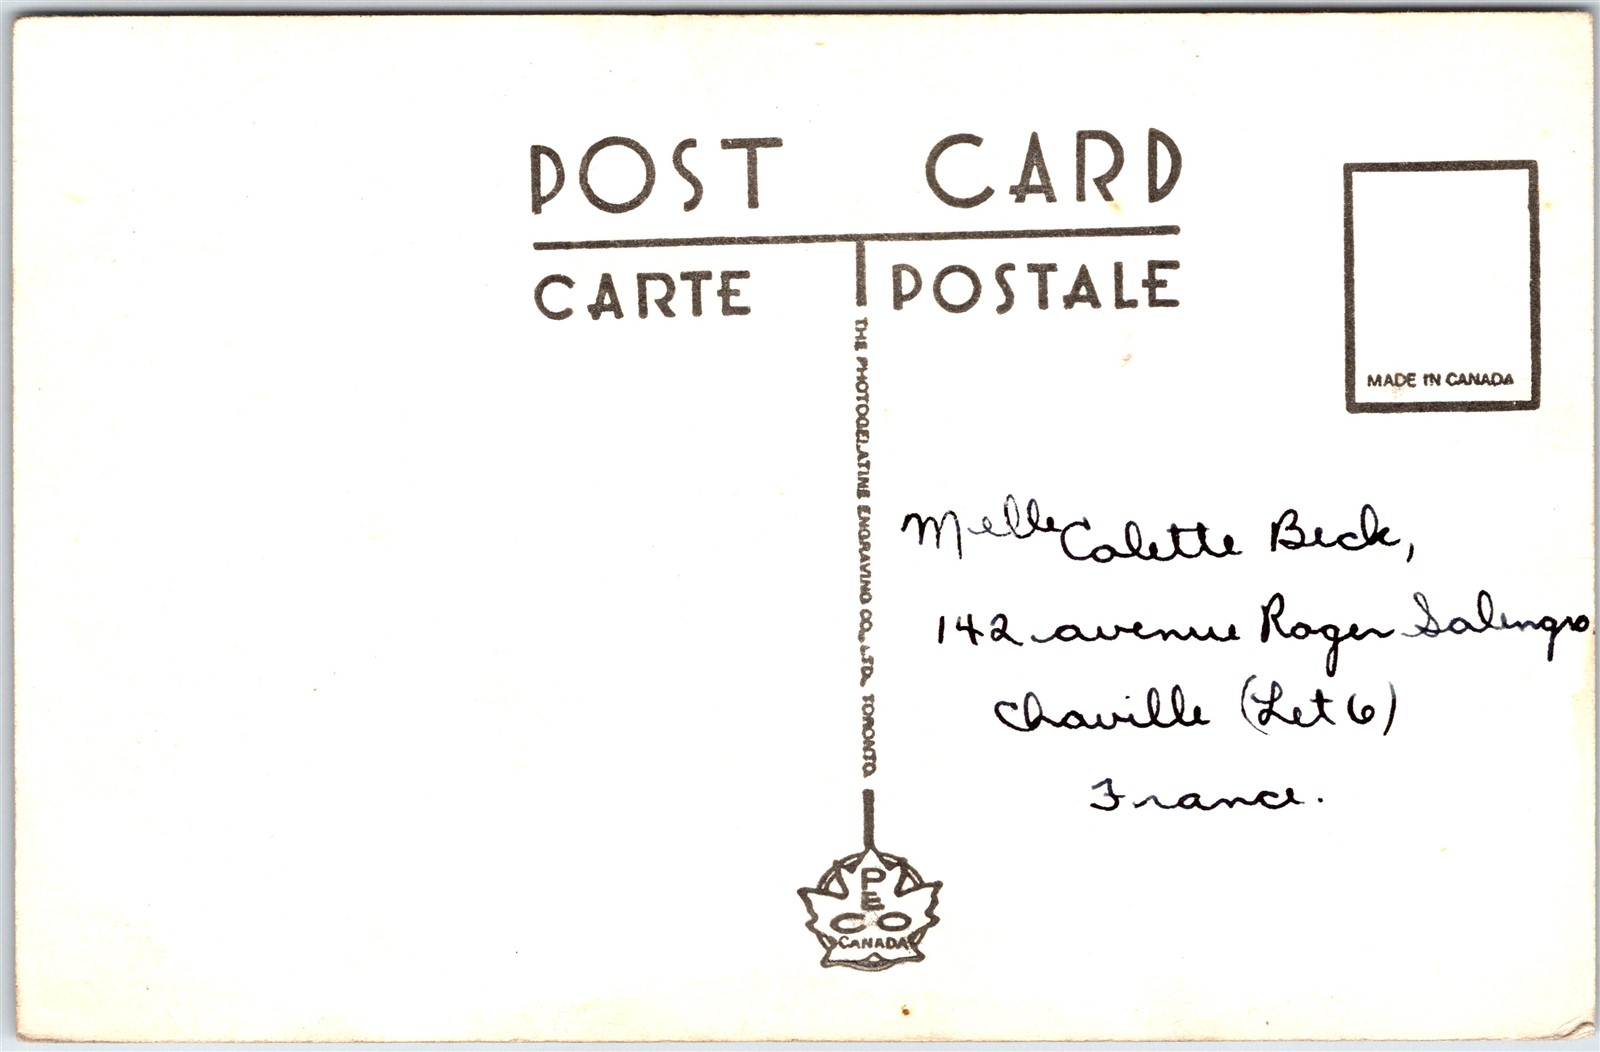 POST CARD
CARTE POSTALE
THE PHOTOGELATINE ENGRAVING CO., LTD. TORONTO
MADE IN CANADA
Melle Colette Beck,
142 avenue Roger Salengro
Chaville (Let 6)
France.
PECO
CANADA